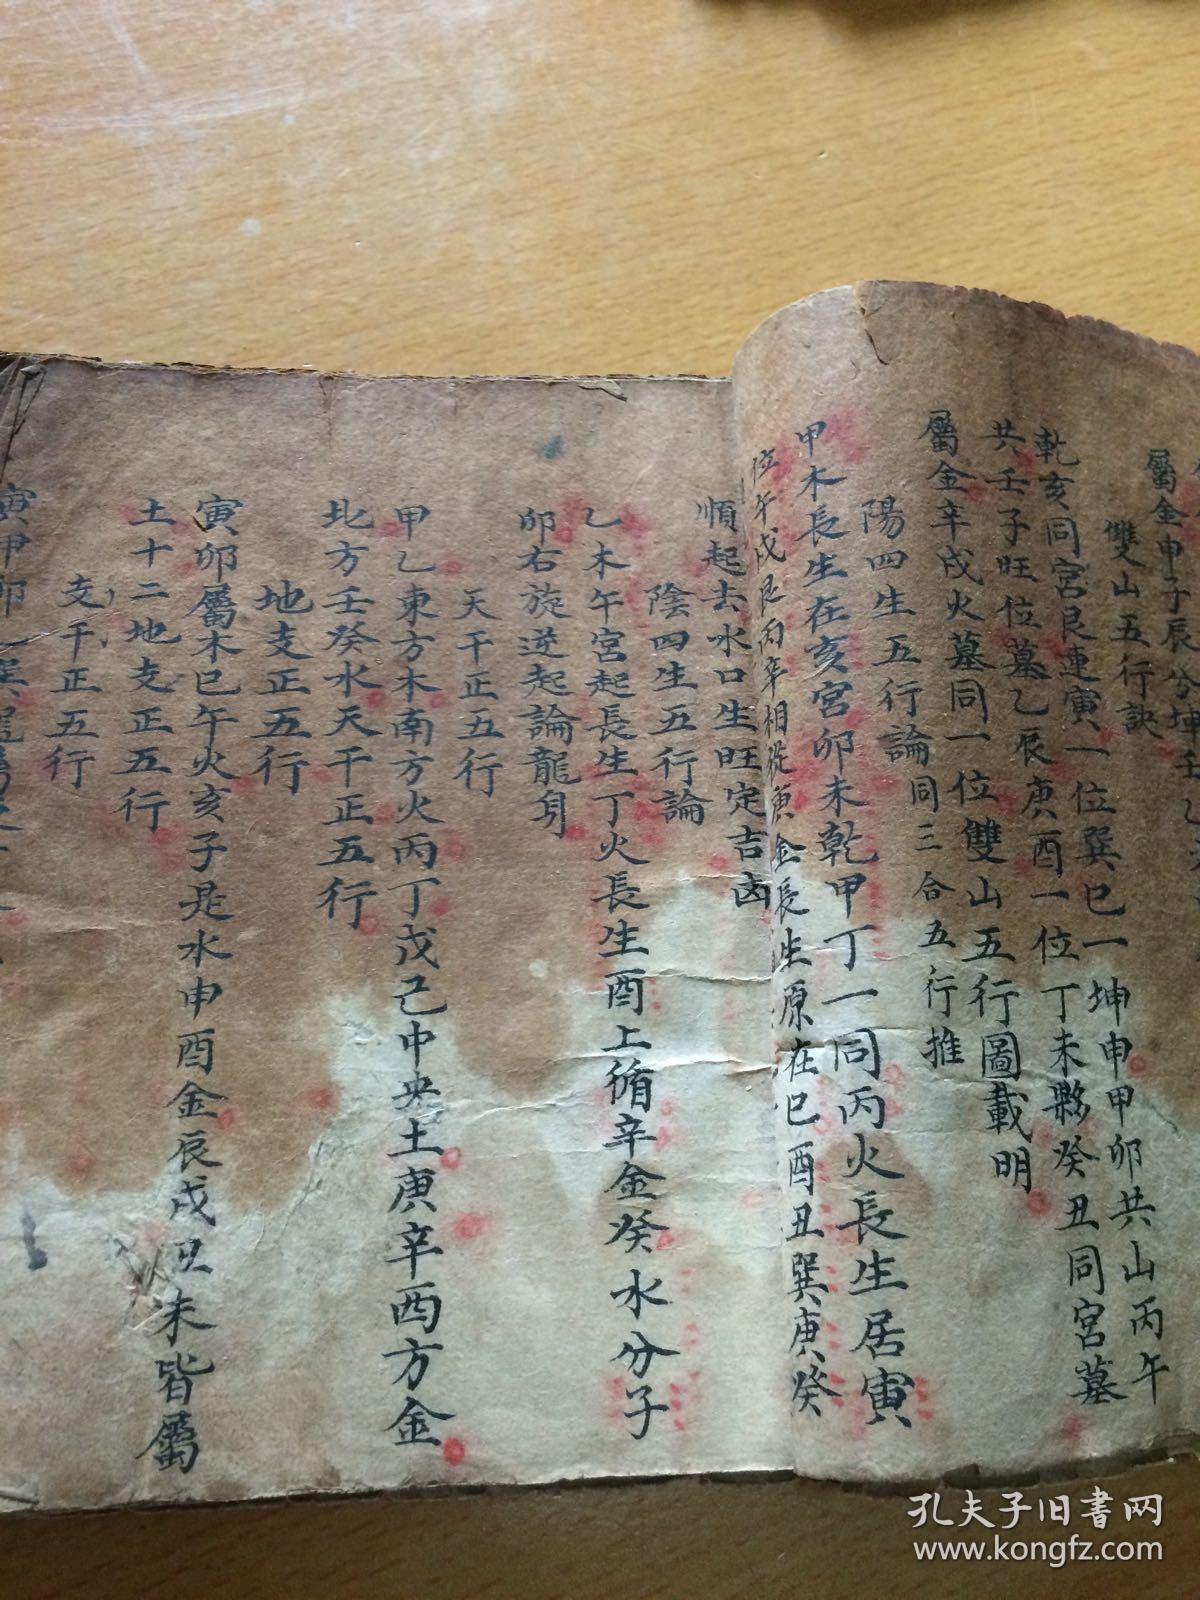 屬金申子辰分坤壬乙
雙山五行訣
乾亥同宮艮連寅一位巽巳一坤申甲卯共山丙午
共壬子旺位墓乙辰庚酉一位丁未夥癸丑同宮墓
屬金辛戌火墓同一位雙山五行圖載明
陽四生五行論同三合五行推
甲木長生在亥宮卯未乾甲丁一同丙火長生居寅
位午戌艮丙辛相從庚金長生原在巳酉丑巽庚癸
順起去水口生旺定吉凶
陰四生五行論
乙木午宮起長生丁火長生酉上循辛金癸水分子
卯右旋逆起論龍身
天干正五行
甲乙東方木南方火丙丁戊己中央土庚辛西方金
北方壬癸水天干正五行
地支正五行
寅卯屬木巳午火亥子是水申酉金辰戌丑未皆屬
土十二地支正五行
支干正五行
寅甲卯乙巽
孔夫子旧書网
www.kongfz.com